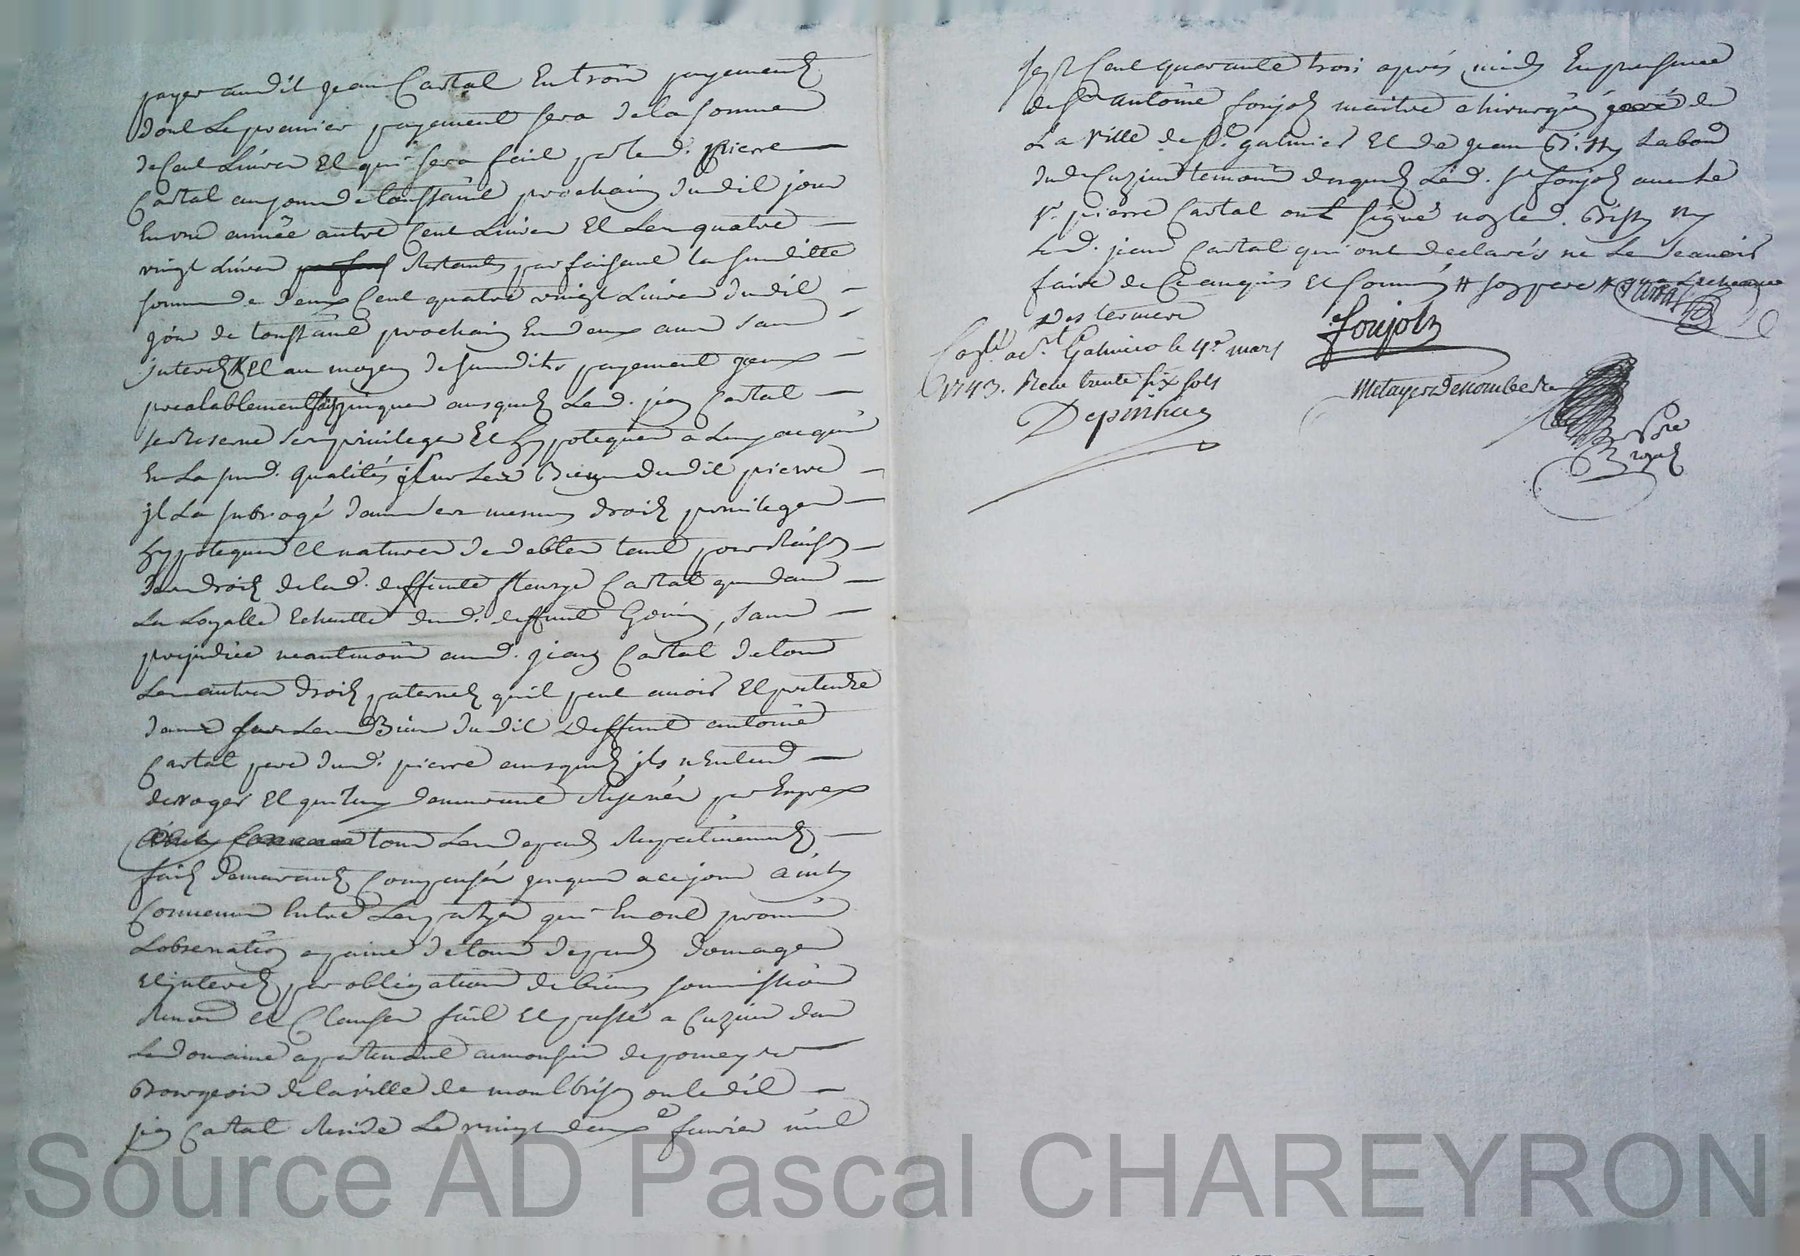 payer audit jean Cartal En trois payements
dont Le premier payement sera de la somme
de Cent Livres Et qui sera fait par led. pierre
Cartal au jour de toussaint prochain dudit jour
En une année autre Cent Livres Et Les quatre
vingt Livres Restants parfaisant la susditte
somme de deux Cent quatre vingt Livres dudit
jour de toussaint prochain En deux ans sans
interets Et au moyen desquits payement
prealablement ausquels Led. jean Cartal
se Reserve ses privileges Et hypoteques a Luy acquis
En La qualités sur Les Biens dudit pierre
il La subrogé dans les mesmes droits privileges
hypoteques Et natures de debtes tant pour Raison
des droits de lad. deffunte fleurye Cartal que dans
La Loyalle Echutte dud. deffunt sans
prejudice neantmoins aud. jean Cartal de tous
Les autres droits paternels qu'il peut avoir Et pretendre
dans sur Les Biens dudit Deffunt antoine
Cartal pere dud. pierre ausquels ils n'Entend
deroger Et qui luy demeurent Reservés par Expres
tous Les depends Respectivement
faits demeurants Compensés jusques a ce jour ainsy
Convenu Entre Les partyes qui En ont promis
Lobservation a paine de tous depends domages
Et interets par obligation de biens soumission
Renon et Clauses fait Et passé a Cuzieu dans
Le domaine apartenant a monsieur de pomey
Bourgeois de la ville de montbrison ou ledit
jean Cartal Reside Le vingt deux fevrier mil
sept Cent quarante trois apres midy En presence
de Sr antoine foujols maitre chirurgien juré de
La ville de St galmier Et de jean
de Cuzieu temoins desquels Led. Sr foujols avec le
Sr. pierre Cartal ont signé non led. ny
Led. jean Cartal qui ont declarés ne Le scavoir
faire de Ce enquis Et sommés
des termes
foujols
Conté a St Galmier le 4e mars
1743. Receu trente six sols
Depinhac
Royal